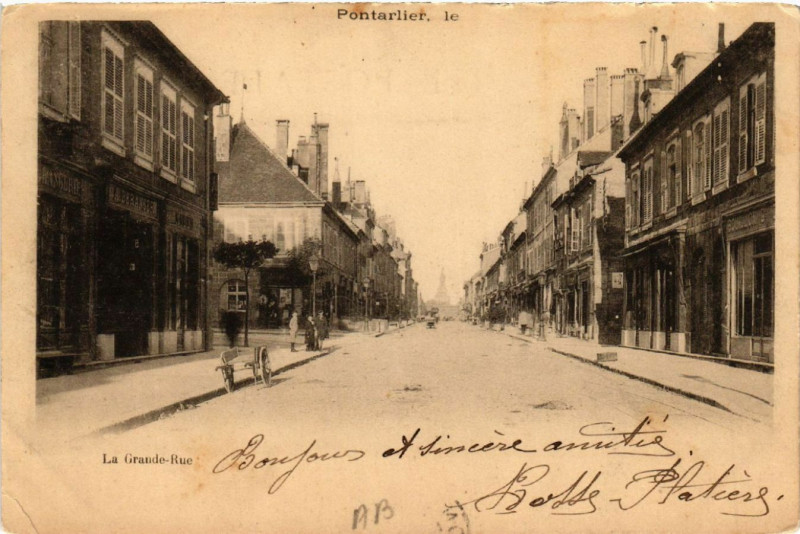 Pontarlier, le
La Grande-Rue
Bonjour et sincère amitié.
Rosse-Platière.
AB